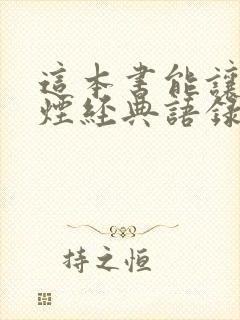 這本書能讓
煙經典語錄
持之恒